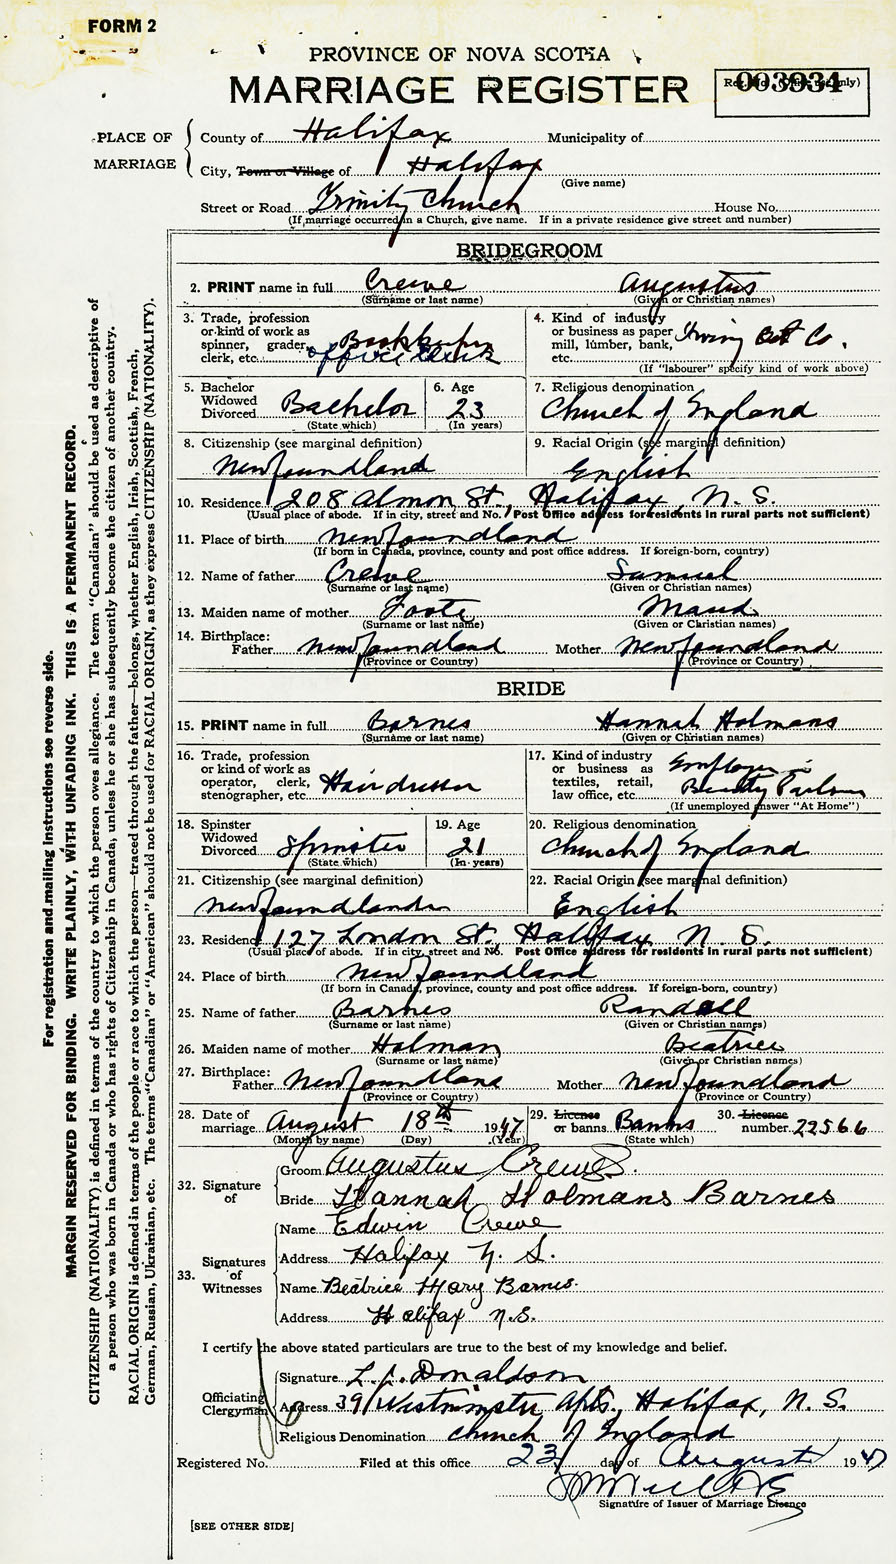 FORM 2
PROVINCE OF NOVA SCOTIA
MARRIAGE REGISTER
Reg. No. (Office use only)
003934
PLACE OF MARRIAGE
County of Halifax Municipality of
City, Town or Village of Halifax
(Give name)
Street or Road Trinity Church House No.
(If marriage occurred in a Church, give name. If in a private residence give street and number)
BRIDEGROOM
2. PRINT name in full Crewe Augustus
(Surname or last name) (Given or Christian names)
3. Trade, profession or kind of work as spinner, grader, clerk, etc. Bookkeeper
office clerk
4. Kind of industry or business as paper mill, lumber, bank, etc. Irving Oil Co.
(If "labourer" specify kind of work above)
5. Bachelor Widowed Divorced Bachelor
(State which)
6. Age 23
(In years)
7. Religious denomination
Church of England
8. Citizenship (see marginal definition)
Newfoundland
9. Racial Origin (see marginal definition)
English
10. Residence 208 Almon St., Halifax, N. S.
(Usual place of abode. If in city, street and No. Post Office address for residents in rural parts not sufficient)
11. Place of birth Newfoundland
(If born in Canada, province, county and post office address. If foreign-born, country)
12. Name of father Crewe Samuel
(Surname or last name) (Given or Christian names)
13. Maiden name of mother Foote Maud
(Surname or last name) (Given or Christian names)
14. Birthplace:
Father Newfoundland Mother Newfoundland
(Province or Country) (Province or Country)
BRIDE
15. PRINT name in full Barnes Hannah Holmans
(Surname or last name) (Given or Christian names)
16. Trade, profession or kind of work as operator, clerk, stenographer, etc. Hairdresser
17. Kind of industry or business as textiles, retail, law office, etc. Employer in
Beauty Parlour
(If unemployed answer "At Home")
18. Spinster Widowed Divorced Spinster
(State which)
19. Age 21
(In years)
20. Religious denomination
Church of England
21. Citizenship (see marginal definition)
Newfoundlander
22. Racial Origin (see marginal definition)
English
23. Residence 127 London St. Halifax N. S.
(Usual place of abode. If in city, street and No. Post Office address for residents in rural parts not sufficient)
24. Place of birth Newfoundland
(If born in Canada, province, county and post office address. If foreign-born, country)
25. Name of father Barnes Randall
(Surname or last name) (Given or Christian names)
26. Maiden name of mother Holman Beatrice
(Surname or last name) (Given or Christian names)
27. Birthplace:
Father Newfoundland Mother Newfoundland
(Province or Country) (Province or Country)
28. Date of marriage August 18th 1947
(Month by name) (Day) (Year)
29. License or banns Banns
(State which)
30. Licence number 22566
32. Signature of
Groom Augustus Crewe
Bride Hannah Holmans Barnes
33. Signatures of Witnesses
Name Edwin Crewe
Address Halifax N. S.
Name Beatrice Mary Barnes
Address Halifax N.S.
I certify the above stated particulars are true to the best of my knowledge and belief.
Officiating Clergyman
Signature L. A. Donaldson
Address 39 Westminster Apts., Halifax, N. S.
Religious Denomination Church of England
Registered No. Filed at this office 23 day of August 1947
Signature of Issuer of Marriage Licence
[SEE OTHER SIDE]
For registration and mailing instructions see reverse side.
MARGIN RESERVED FOR BINDING. WRITE PLAINLY, WITH UNFADING INK. THIS IS A PERMANENT RECORD.
CITIZENSHIP (NATIONALITY) is defined in terms of the country to which the person owes allegiance. The term "Canadian" should be used as descriptive of
a person who was born in Canada or who has rights of Citizenship in Canada, unless he or she has subsequently become the citizen of another country.
RACIAL ORIGIN is defined in terms of the people or race to which the person—traced through the father—belongs, whether English, Irish, Scottish, French,
German, Russian, Ukrainian, etc. The terms "Canadian" or "American" should not be used for RACIAL ORIGIN, as they express CITIZENSHIP (NATIONALITY).